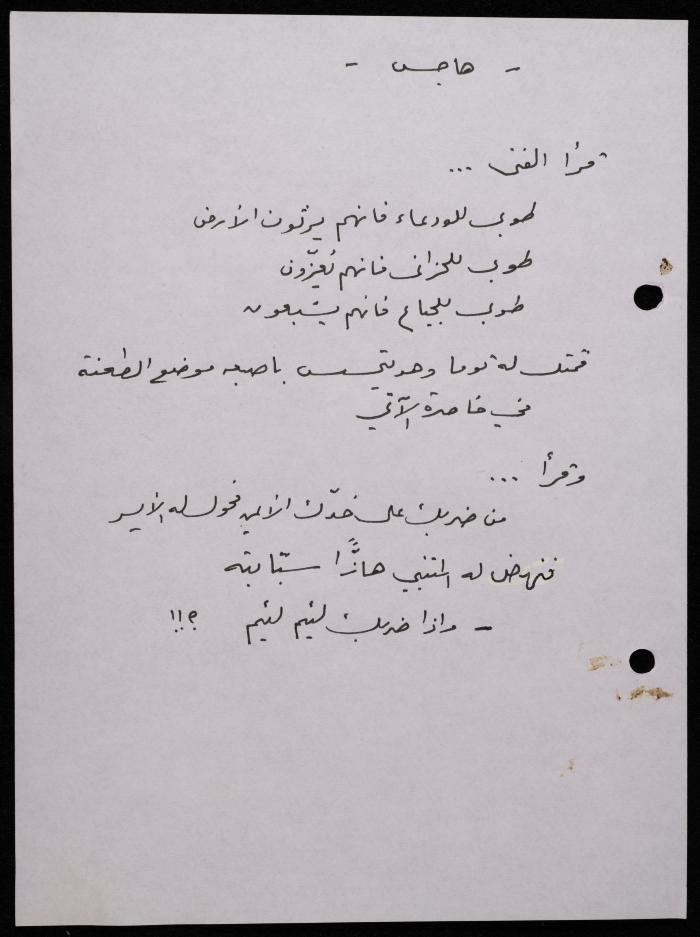 - هاجس -
قرأ الفتى ...
طوبى للودعاء فانهم يرثون الأرض
طوبى للحزانى فانهم يُعزّون
طوبى للجياع فانهم يشبعون
فمثل له توما وهو يتحسس باصبعه موضع الطعنة
في خاصرة الآتي
وقرأ ...
من ضربك على خدّك الأيمن فحول له الأيسر
فنهض له المتنبي هازًّا سبّابته
- واذا ضربك لئيم لئيم ؟!!